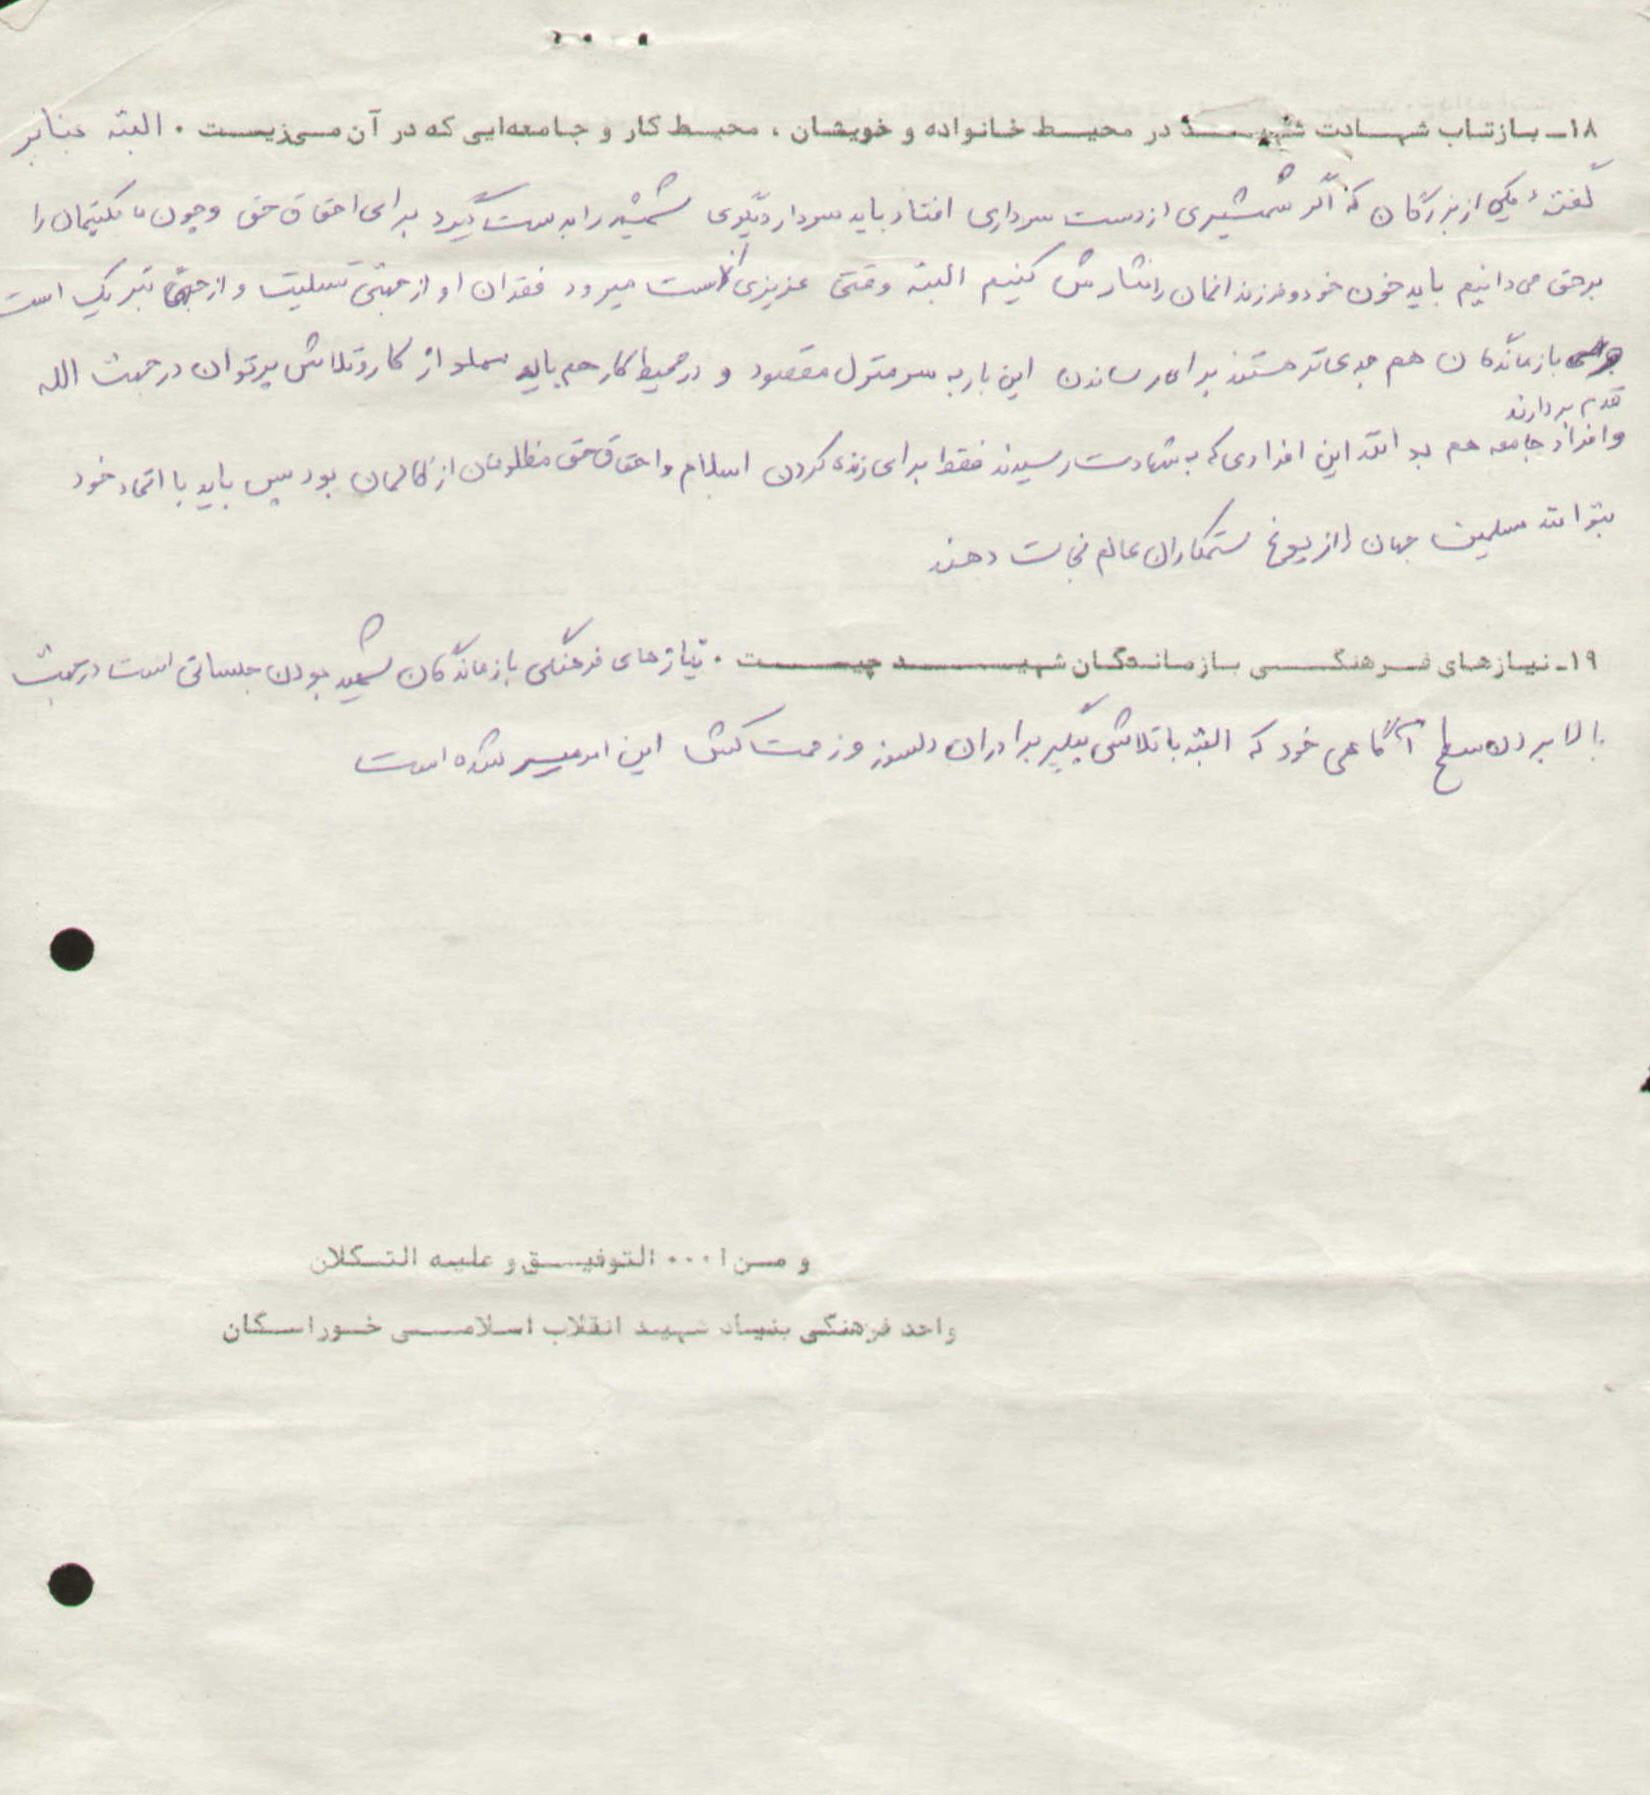 ۱۸- بازتاب شهادت شهید در محیط خانواده و خویشان ، محیط کار و جامعه‌ایی که در آن می‌زیست . البته بنابر
گفتهٔ یکی از بزرگان که اگر شمشیری از دست سرداری افتاد باید سردار دیگری شمشیر را بدست گیرد برای احقاق حق و چون ما مکتبمان را
بر حق می‌دانیم باید خون خود و فرزندانمان را نثارش کنیم البته وقتی عزیزی از دست میرود فقدان او از جهتی تسلیت و از جهتی تبریک است
بازماندگان هم جدی‌تر هستند برای رساندن این بار به سر منزل مقصود و در محیط کار هم باید مملو از کار و تلاش پرتوان در جهت الله
قدم بردارند
و افراد جامعه هم بدانند این افرادی که به شهادت رسیدند فقط برای زنده کردن اسلام و احقاق حق مظلومان از ظالمان بود پس باید با اتحاد خود
بتوانند مسلمین جهان را از یوغ ستمکاران عالم نجات دهند
۱۹- نیازهای فرهنگی بازماندگان شهید چیست . نیازهای فرهنگی بازماندگان شهید بودن جلساتی است در جهت
بالا بردن سطح آگاهی خود که البته با تلاش پیگیر برادران دلسوز و زحمت کش این امر میسر شده است
و من ا... التوفیق و علیه التکلان
واحد فرهنگی بنیاد شهید انقلاب اسلامی خوراسگان